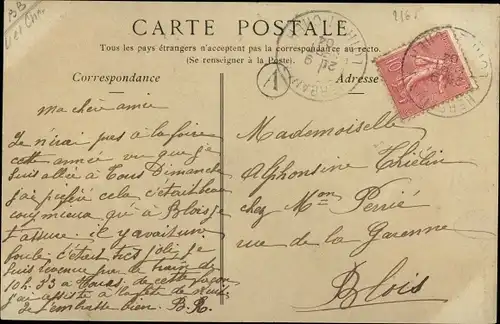 CARTE POSTALE
Tous les pays étrangers n'acceptent pas la correspondance au recto.
(Se renseigner à la Poste).
Correspondance
Adresse
ma chère amie
Je n'irai pas à la foire
cette année vu que je
suis allée à Tours Dimanche
j'ai préféré cela c'était beau
coup mieux qu'à Blois je
t'assure. il y avait une
foule c'était très joli je
suis revenue par le train de
10h.33 à Tours de cette façon
j'ai assisté à la fête de nuit
Je t'embrasse bien. B.R.
Mademoiselle
Alphonsine Thiélin
chez Mon Perrié
rue de la Garenne
Blois